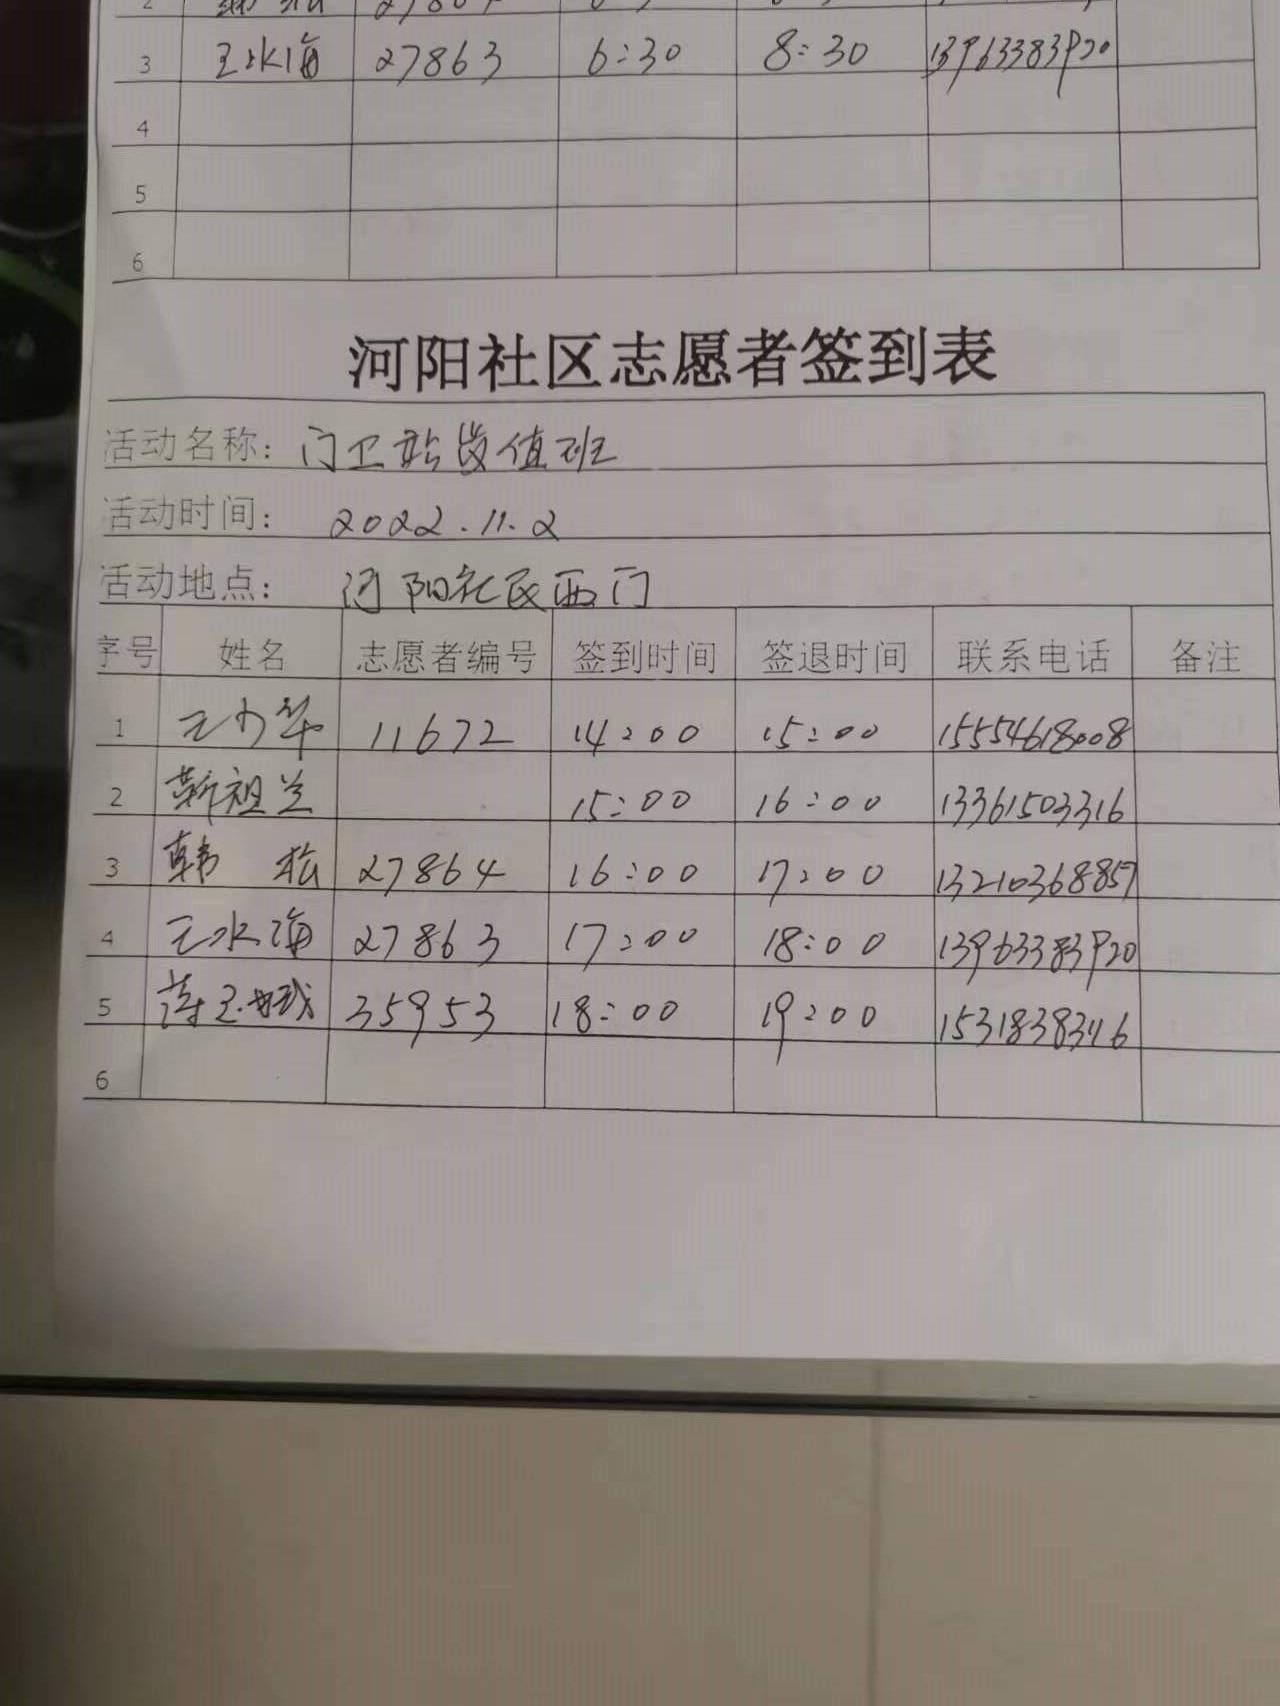 2 27864
3 王水海 27863 6:30 8:30 13963383920
4
5
6
河阳社区志愿者签到表
活动名称: 门卫站岗值班
活动时间: 2022.11.2
活动地点: 河阳社区西门
序号 姓名 志愿者编号 签到时间 签退时间 联系电话 备注
1 王少华 11672 14:00 15:00 15554618008
2 靳祖兰 15:00 16:00 13361503316
3 韩松 27864 16:00 17:00 13210368857
4 王水海 27863 17:00 18:00 13963383920
5 35953 18:00 19:00
6